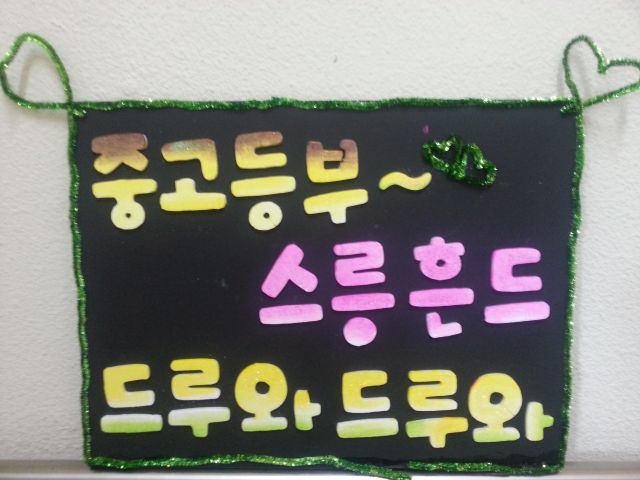 중고등부~
스릉흔드
드루와 드루와